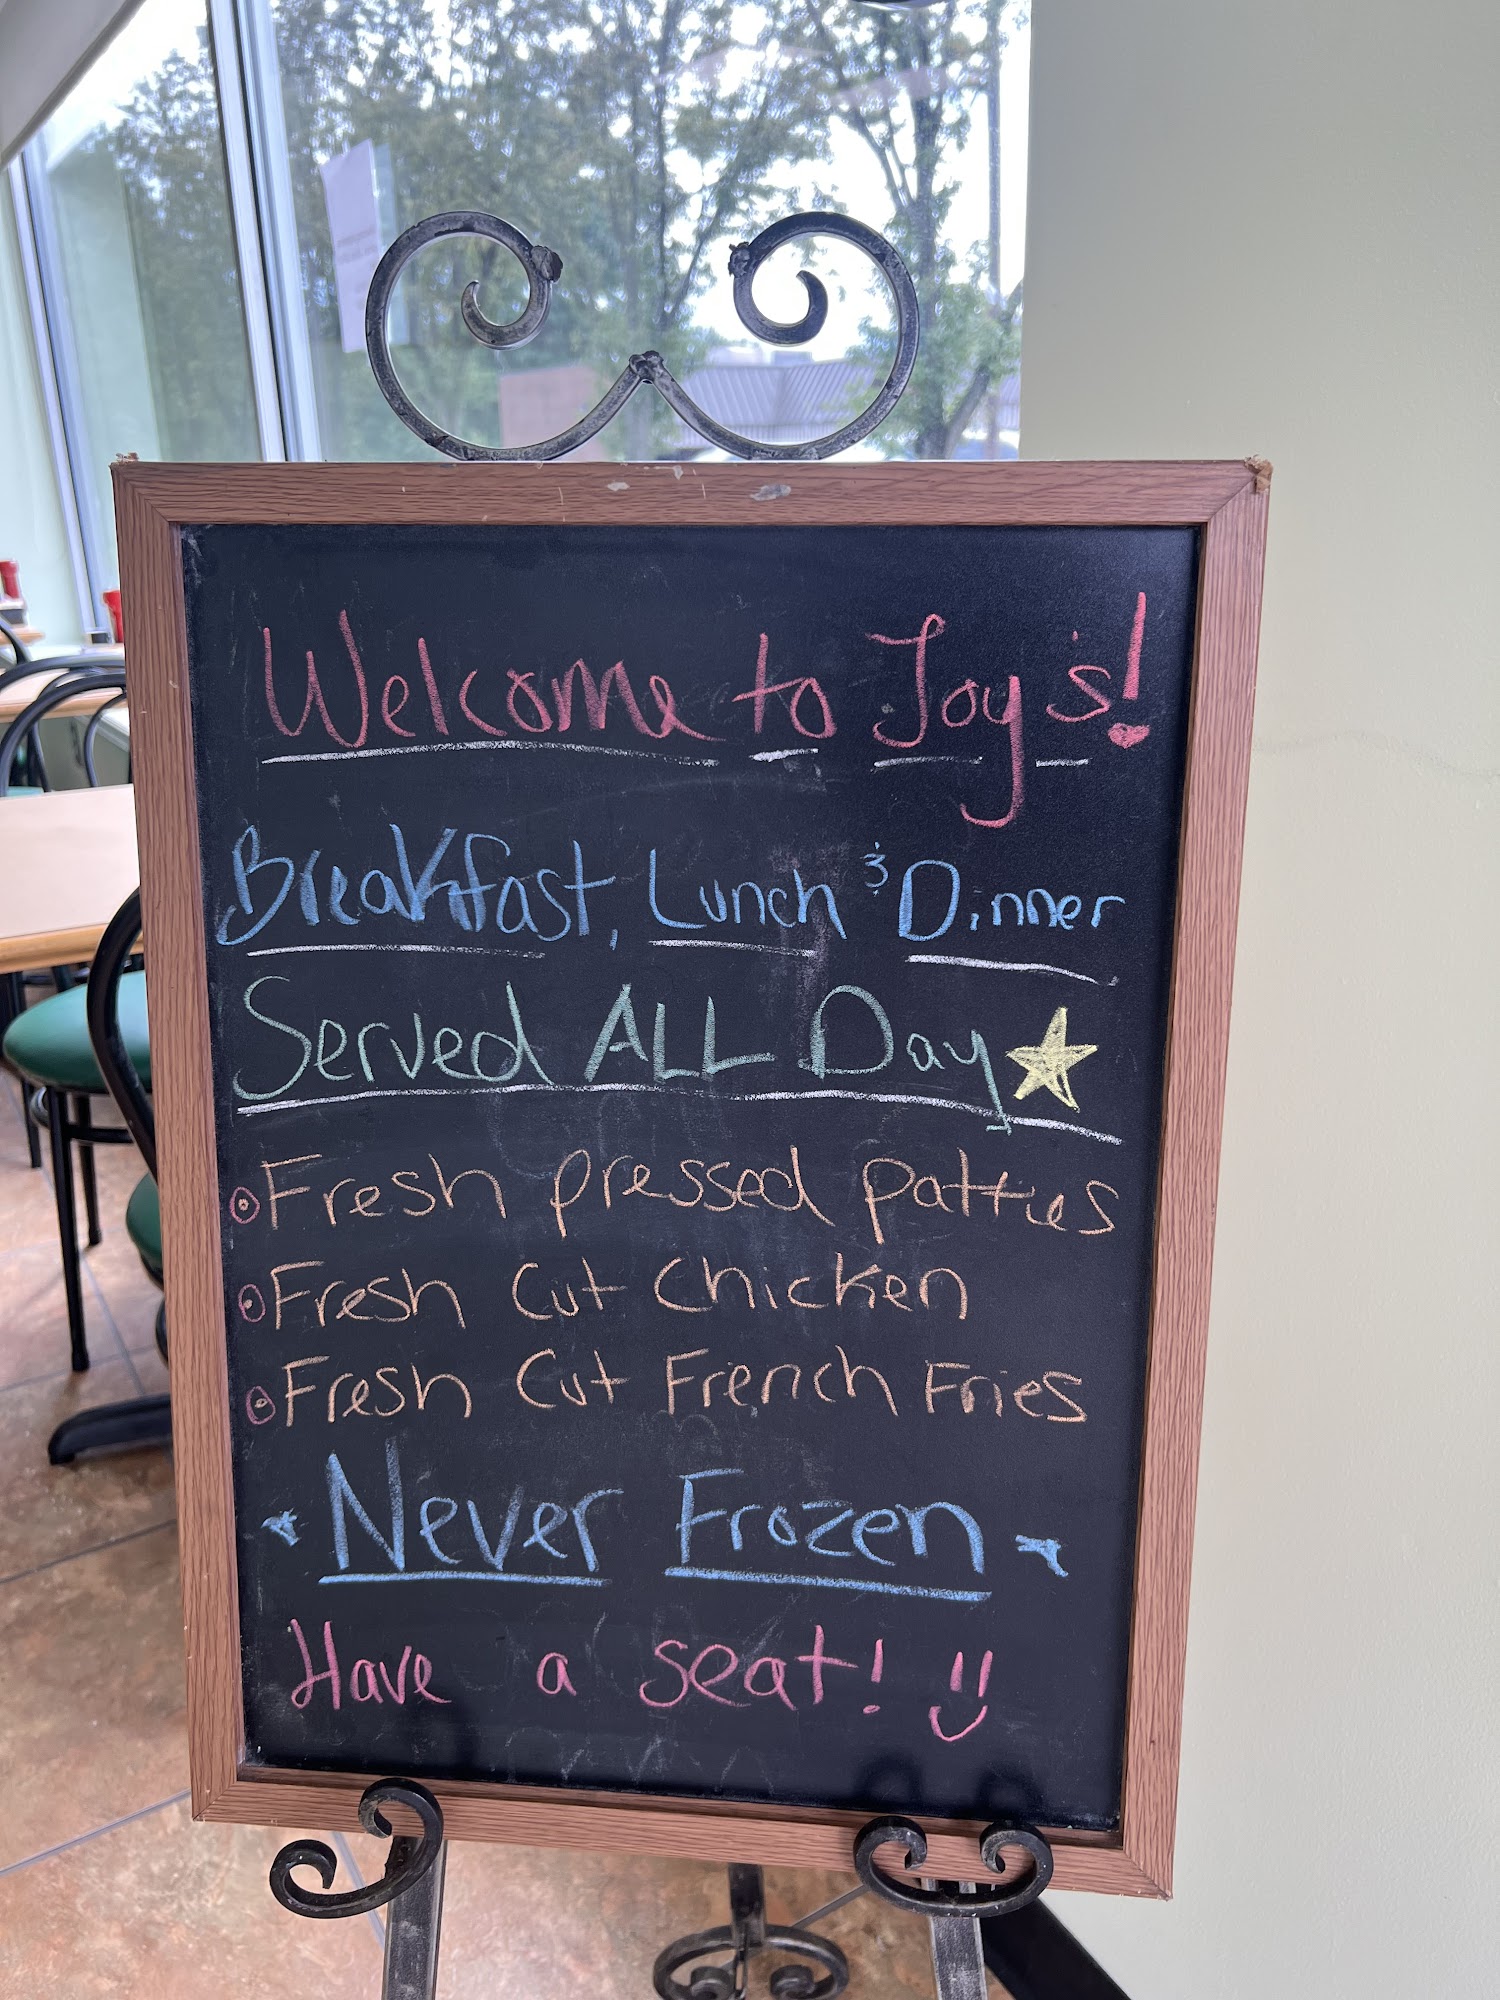 Welcome to Joy's!
Breakfast, Lunch & Dinner
Served ALL Day
Fresh pressed patties
Fresh Cut Chicken
Fresh Cut French Fries
Never Frozen
Have a seat!